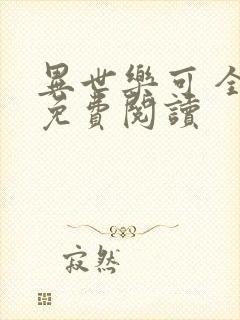 異世樂可 全
免費閱讀
寂然